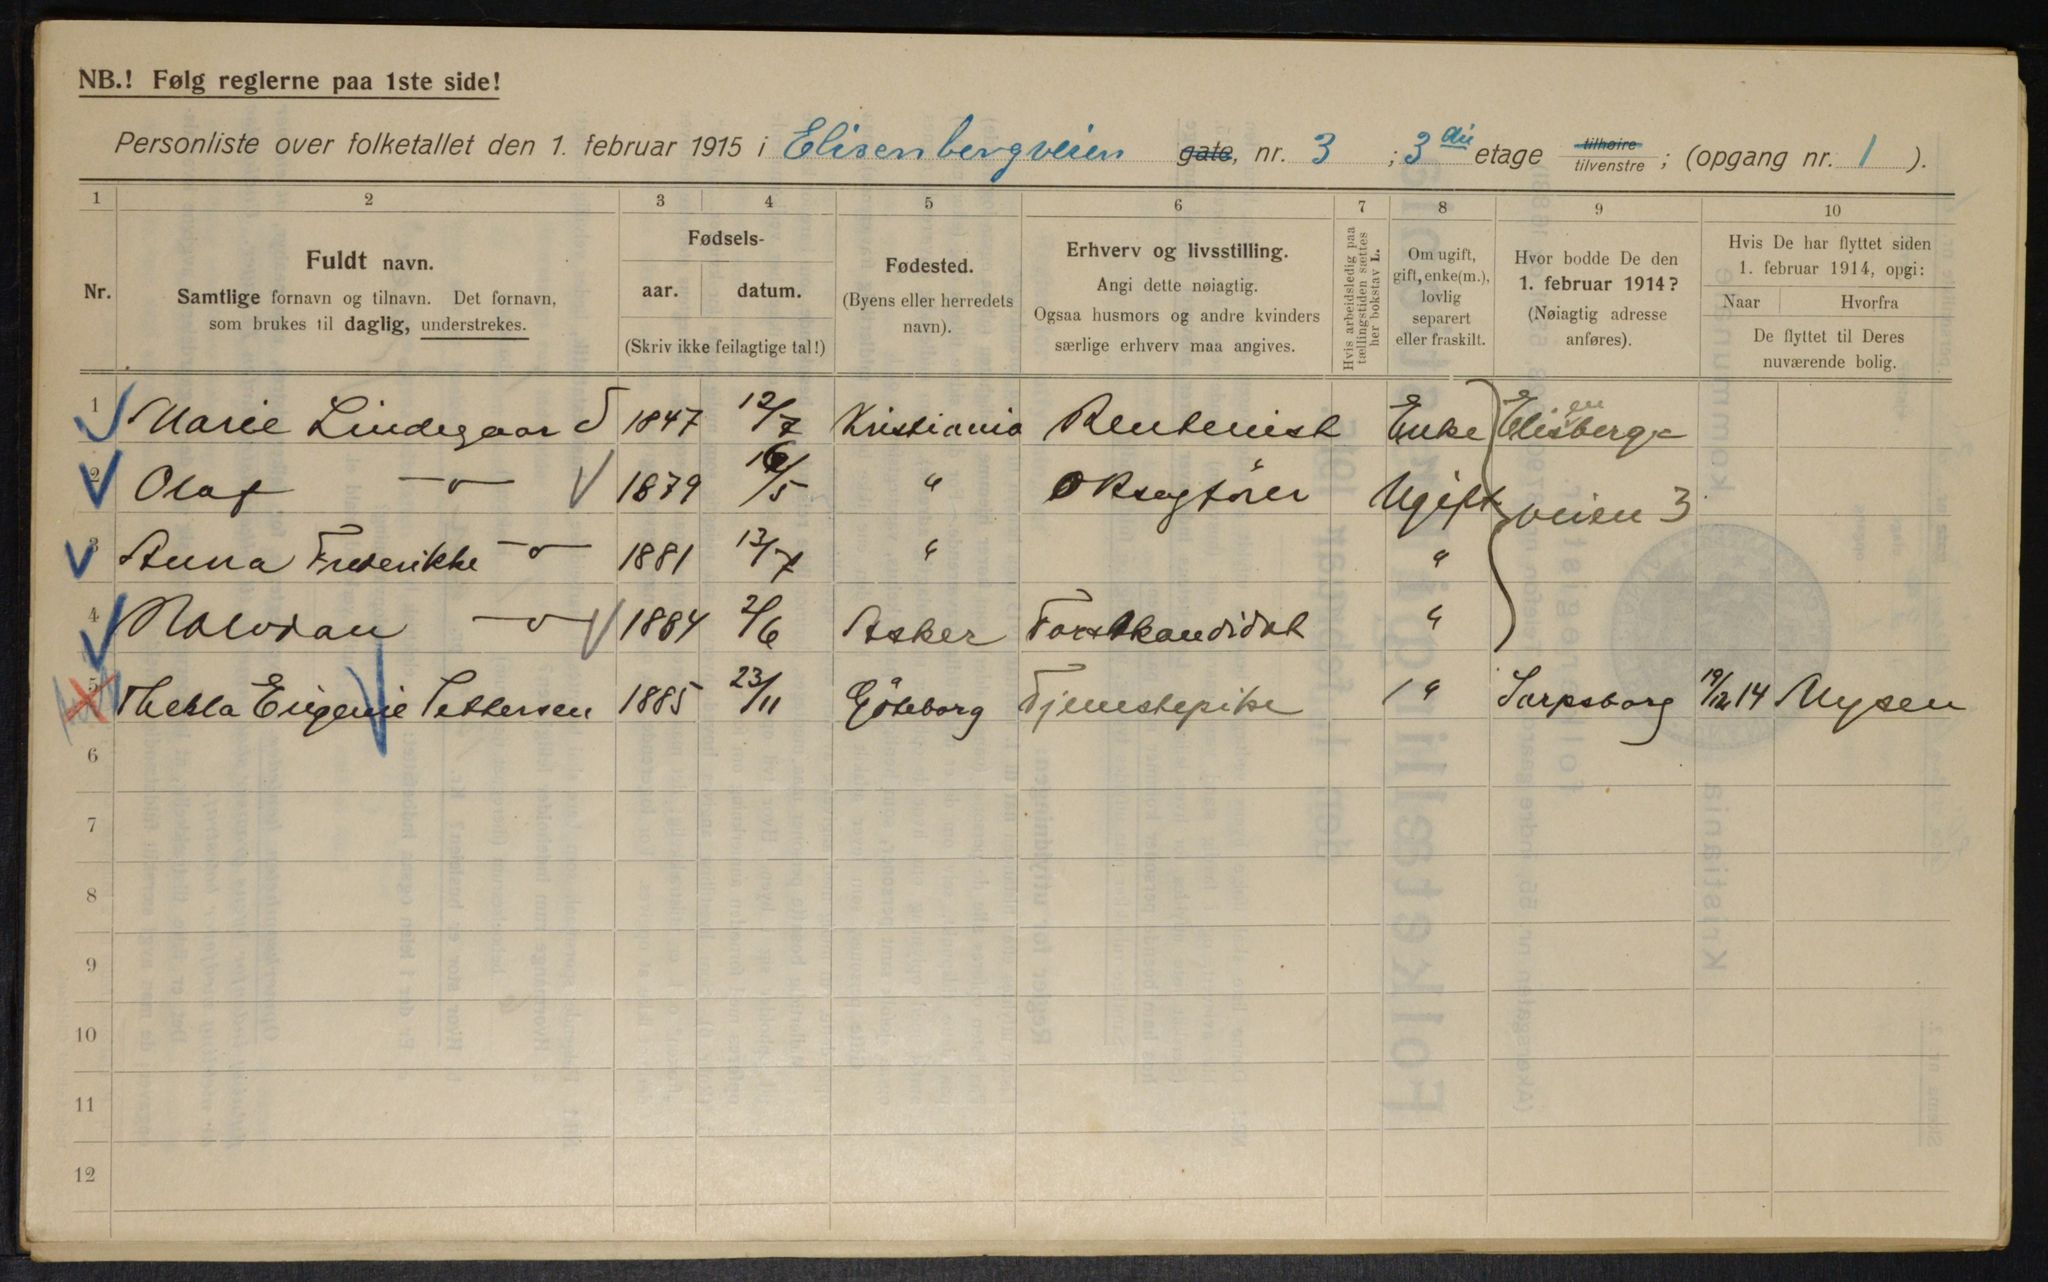 NB.! Følg reglerne paa 1ste side!
Personliste over folketallet den 1. februar 1915 i Elisenbergveien gate, nr. 3 ; 3die etage tilhøire tilvenstre ; (opgang nr. 1 ).
1 2 3 4 5 6 7 8 9 10
Nr.
Fuldt navn.
Samtlige fornavn og tilnavn. Det fornavn,
som brukes til daglig, understrekes.
Fødsels-
aar. datum.
(Skriv ikke feilagtige tal!)
Fødested.
(Byens eller herredets
navn).
Erhverv og livsstilling.
Angi dette nøiagtig.
Ogsaa husmors og andre kvinders
særlige erhverv maa angives.
Hvis arbeidsledig paa
tællingstiden sættes
her bokstav L.
Om ugift,
gift, enke(m.),
lovlig
separert
eller fraskilt.
Hvor bodde De den
1. februar 1914?
(Nøiagtig adresse
anføres).
Hvis De har flyttet siden
1. februar 1914, opgi:
Naar Hvorfra
De flyttet til Deres
nuværende bolig.
1 Marie Lindegaard 1847 12/7 Kristiania Rentenist Enke Elisenberg-
2 Olaf —"— 1879 16/5 " Oksagfører Ugift veien 3
3 Anna Frederikke —"— 1881 13/7 " "
4 Halvdan —"— 1884 2/6 Asker Forstkandidat "
5 Thekla Eugenie Pettersen 1885 23/11 Göteborg Tjenestepike " Sarpsborg 19/12 14 Mysen
6
7
8
9
10
11
12